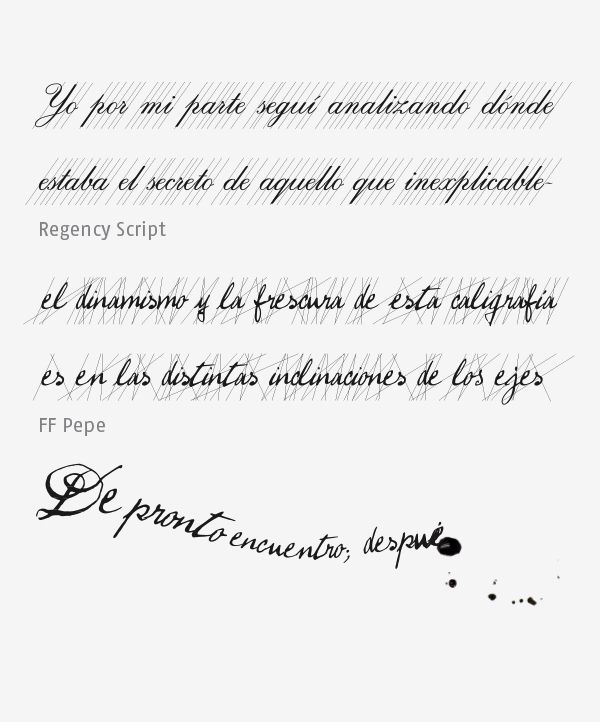 Yo por mi parte seguí analizando dónde
estaba el secreto de aquello que inexplicable-
Regency Script
el dinamismo y la frescura de esta caligrafía
es en las distintas inclinaciones de los ejes
FF Pepe
De pronto encuentro; despué